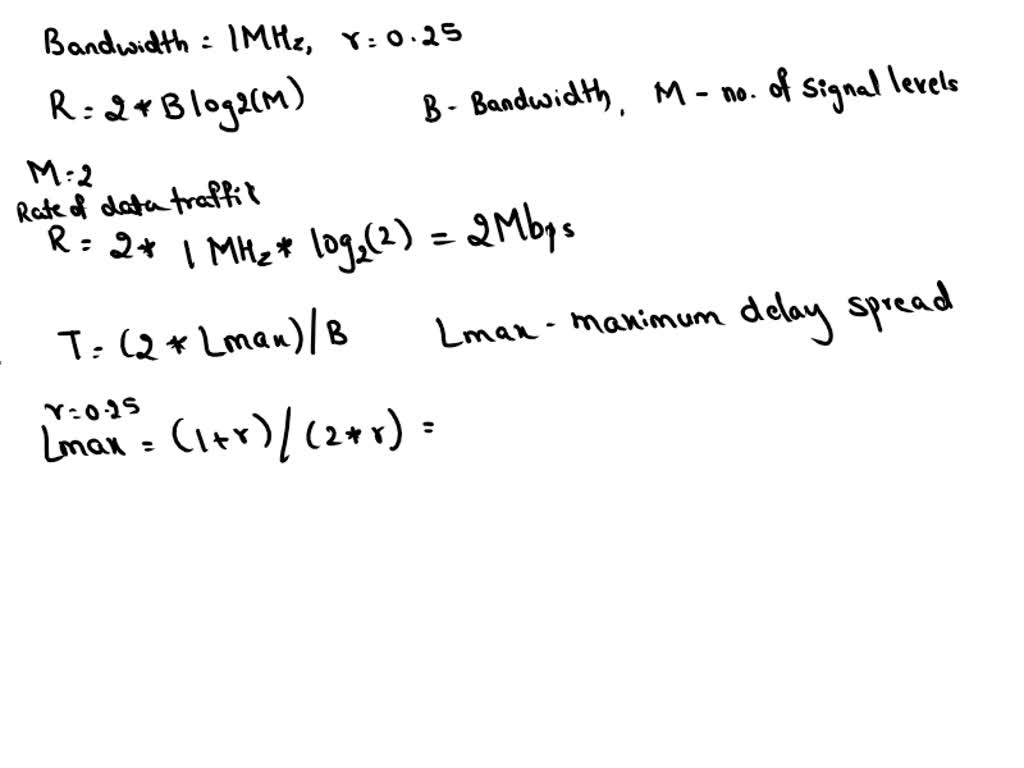 Bandwidth = 1MHz, r = 0.25
R = 2 * B log2(M) B - Bandwidth, M - no. of signal levels
M = 2
Rate of data traffic
R = 2 * 1 MHz * log₂(2) = 2Mbps
T = (2 * Lmax) / B Lmax - maximum delay spread
r = 0.25
Lmax = (1+r) / (2 * r) =